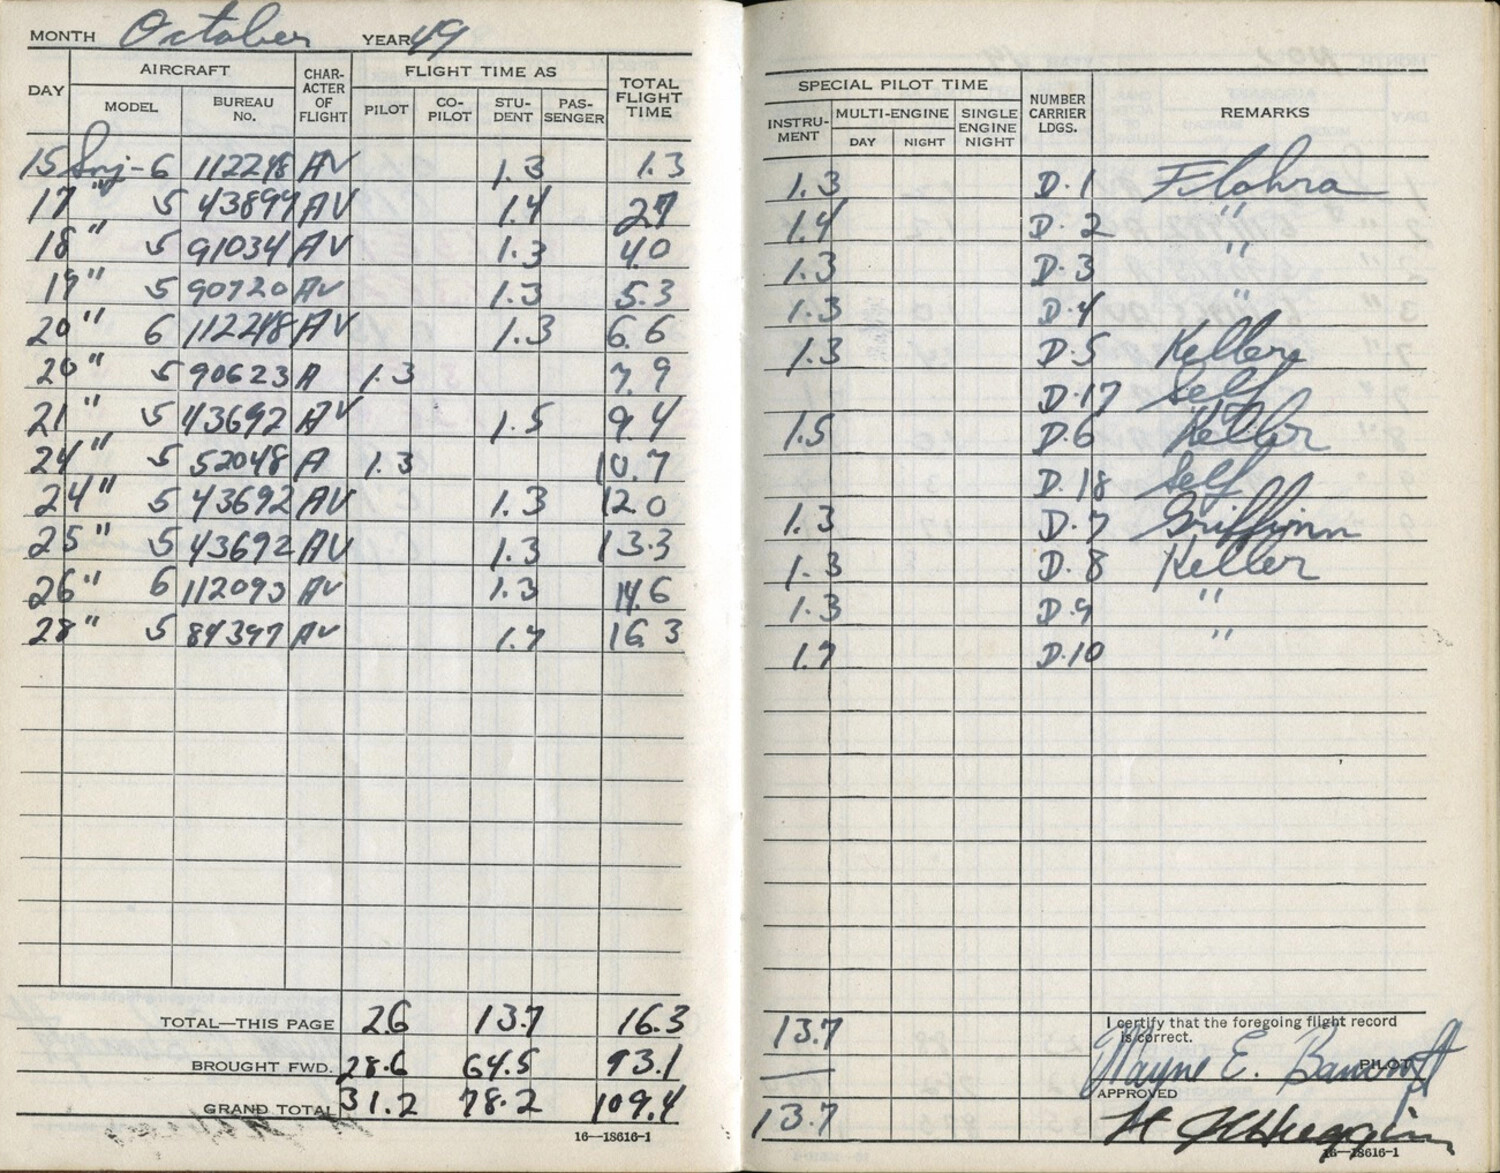 MONTH October YEAR 49
DAY AIRCRAFT CHARACTER OF FLIGHT FLIGHT TIME AS TOTAL FLIGHT TIME
MODEL BUREAU No. PILOT CO-PILOT STUDENT PASSENGER
15 Snj-6 112248 AV 1.3 1.3
17 " 5 43899 AV 1.4 27
18 " 5 91034 AV 1.3 4.0
19 " 5 90720 AV 1.3 5.3
20 " 6 112248 AV 1.3 6.6
20 " 5 90623 A 1.3 7.9
21 " 5 43692 AV 1.5 9.4
24 " 5 52048 A 1.3 10.7
24 " 5 43692 AV 1.3 12.0
25 " 5 43692 AV 1.3 13.3
26 " 6 112093 AV 1.3 14.6
28 " 5 84397 AV 1.7 16.3
TOTAL—THIS PAGE 26 13.7 16.3
BROUGHT FWD. 28.6 64.5 93.1
GRAND TOTAL 31.2 78.2 109.4
16—18616-1
SPECIAL PILOT TIME NUMBER CARRIER LDGS. REMARKS
INSTRUMENT MULTI-ENGINE SINGLE ENGINE NIGHT
DAY NIGHT
1.3 D.1 Flohra
1.4 D.2 "
1.3 D.3 "
1.3 D.4 "
1.3 D.5 Keller
D.17 Self
1.5 D.6 Keller
D.18 Self
1.3 D.7 Griffinn
1.3 D.8 Keller
1.3 D.9 "
1.7 D.10 "
13.7 I certify that the foregoing flight record
is correct.
Wayne E. Bancroft PILOT
APPROVED
13.7
16—18616-1